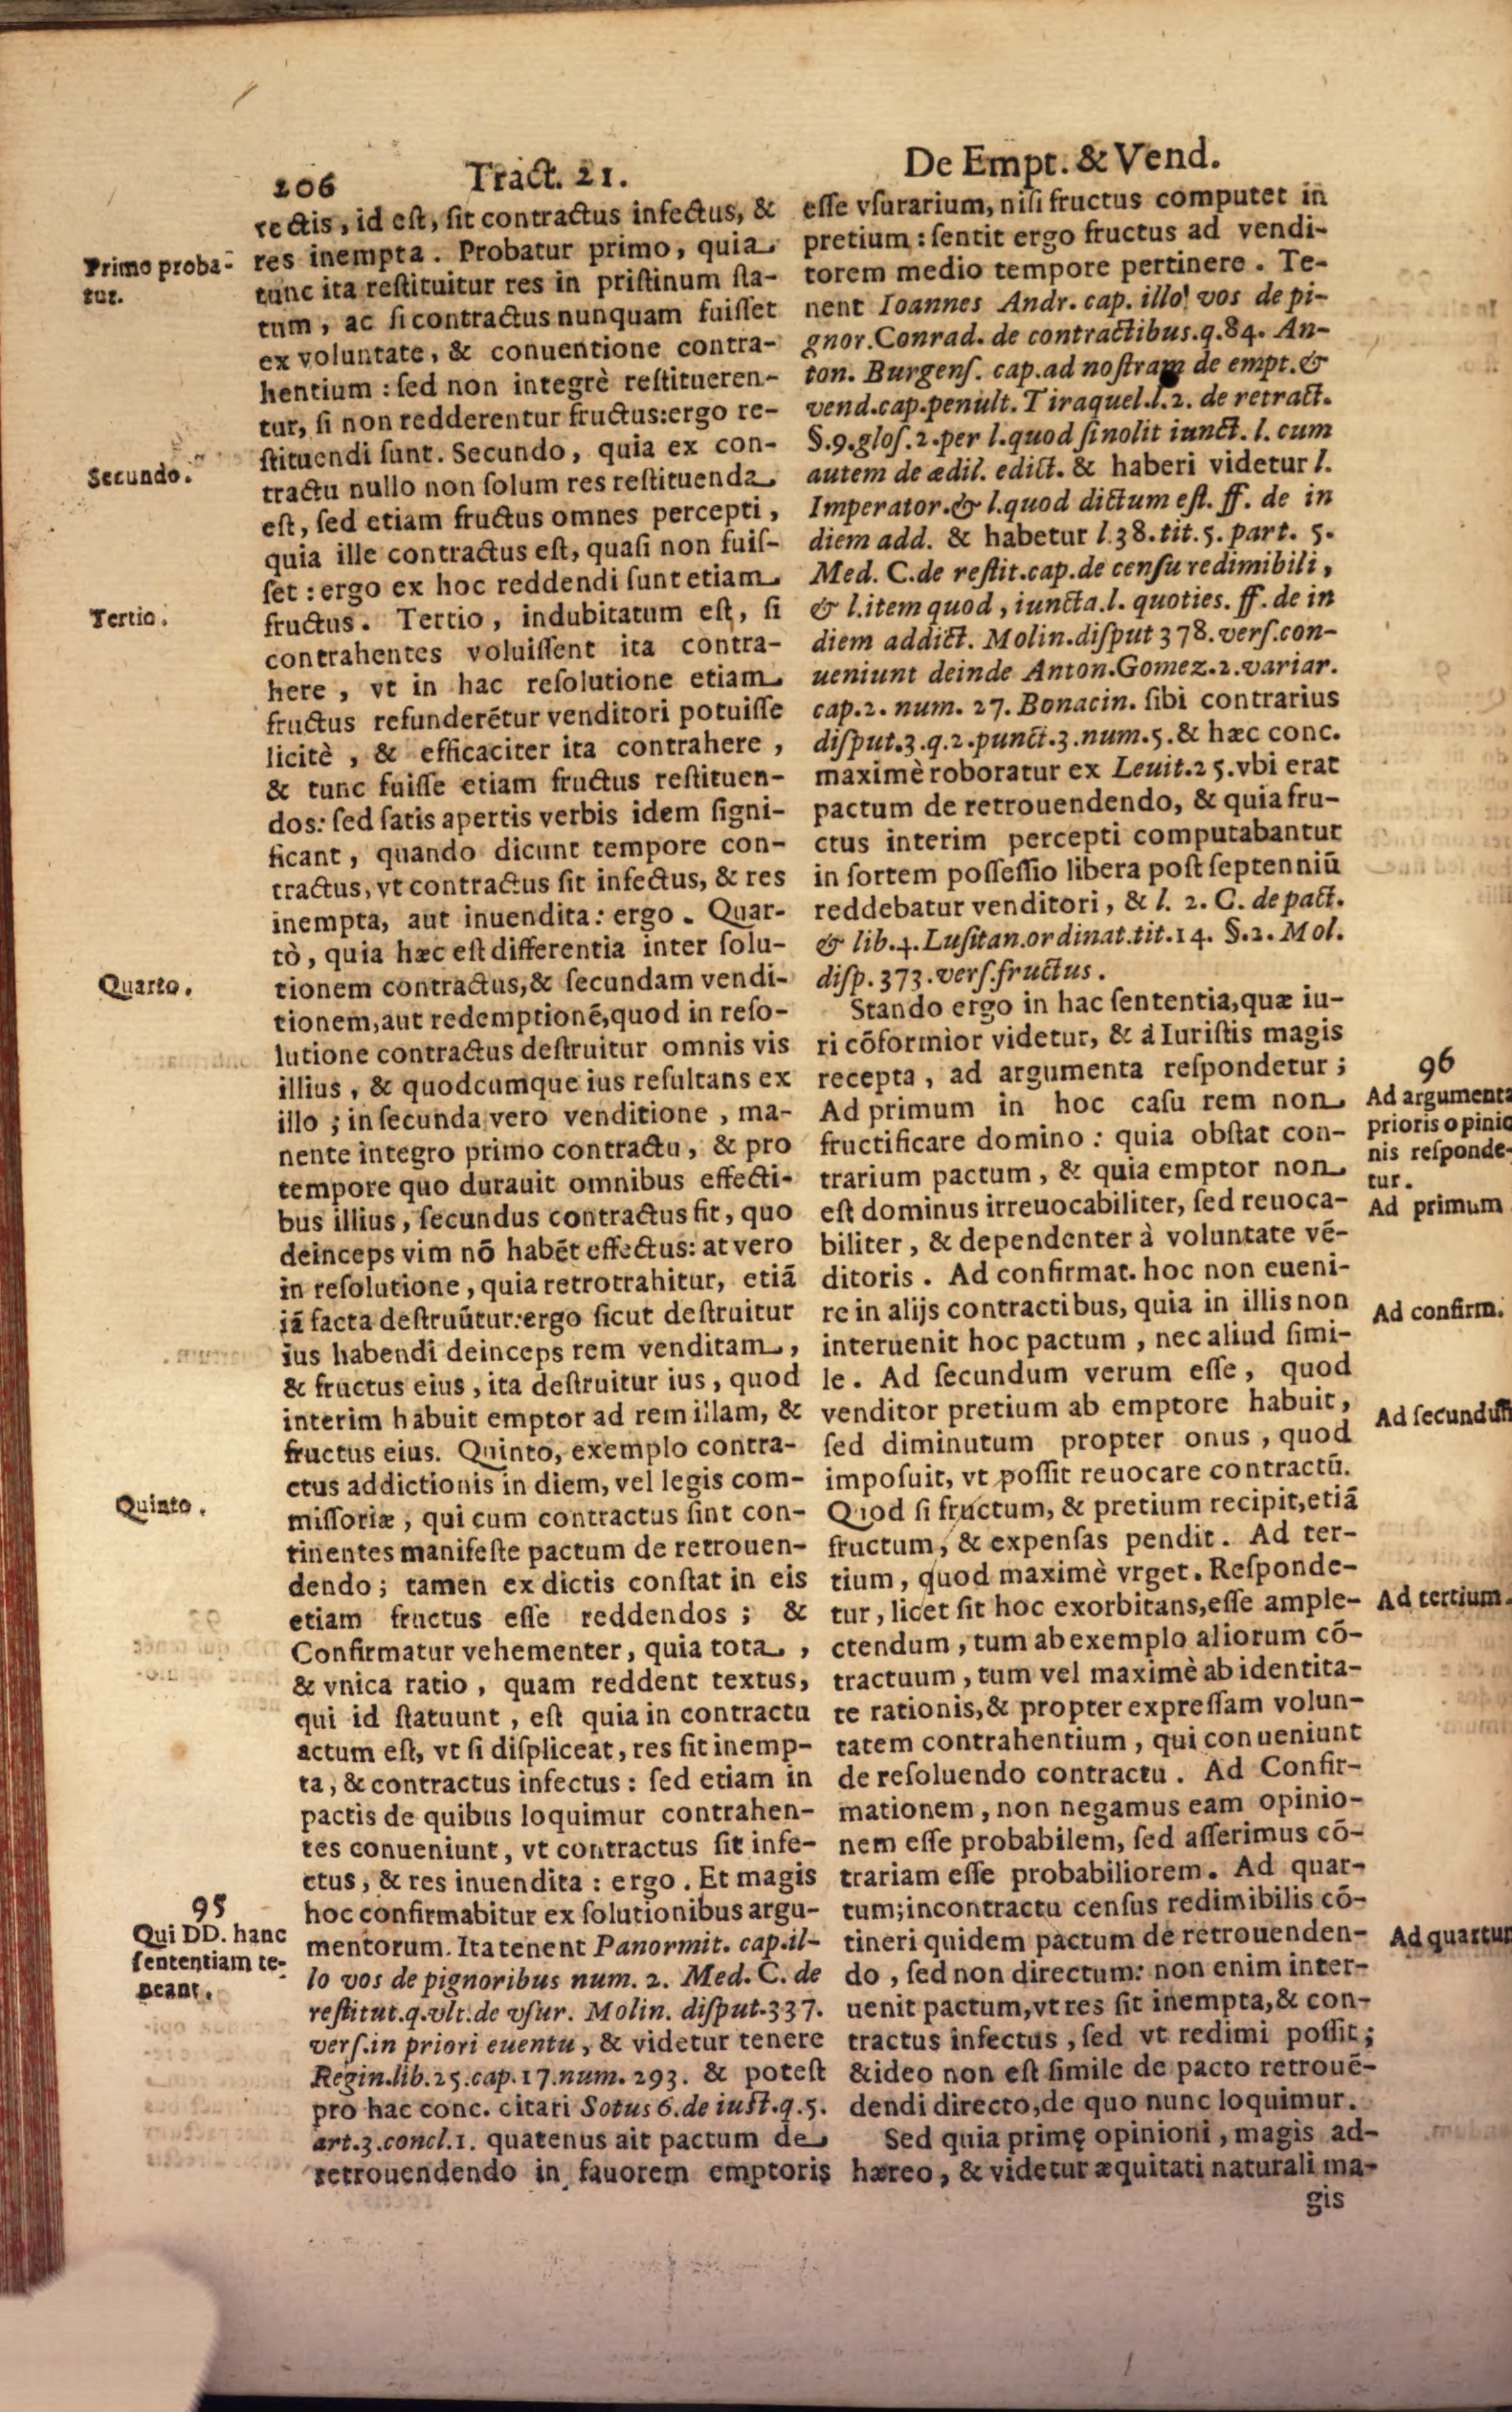 206
Tract. 21.
De Empt. & Vend.
rectis, id eſt, ſit contractus infectus, &
res inempta. Probatur primo, quia
tunc ita reſtituitur res in priſtinum ſta-
tum, ac ſi contractus nunquam fuiſſet
ex voluntate, & conuentione contra-
hentium : ſed non integrè reſtitueren-
tur, ſi non redderentur fructus:ergo re-
ſtituendi ſunt. Secundo, quia ex con-
tractu nullo non ſolum res reſtituenda
eſt, ſed etiam fructus omnes percepti,
quia ille contractus eſt, quaſi non fuiſ-
ſet : ergo ex hoc reddendi ſunt etiam
fructus. Tertio, indubitatum eſt, ſi
contrahentes voluiſſent ita contra-
here, vt in hac reſolutione etiam
fructus refunderētur venditori potuiſſe
licitè, & efficaciter ita contrahere,
& tunc fuiſſe etiam fructus reſtituen-
dos: ſed ſatis apertis verbis idem ſigni-
ficant, quando dicunt tempore con-
tractus, vt contractus ſit infectus, & res
inempta, aut inuendita: ergo. Quar-
tò, quia hæc eſt differentia inter ſolu-
tionem contractus,& ſecundam vendi-
tionem,aut redemptionē,quod in reſo-
lutione contractus deſtruitur omnis vis
illius, & quodcumque ius reſultans ex
illo ; in ſecunda vero venditione, ma-
nente integro primo contractu, & pro
tempore quo durauit omnibus effecti-
bus illius, ſecundus contractus fit, quo
deinceps vim nō habēt effectus: at vero
in reſolutione, quia retrotrahitur, etiā
iā facta deſtruūtur:ergo ſicut deſtruitur
ius habendi deinceps rem venditam,
& fructus eius, ita deſtruitur ius, quod
interim habuit emptor ad rem illam, &
fructus eius. Quinto, exemplo contra-
ctus addictionis in diem, vel legis com-
miſſoriæ, qui cum contractus ſint con-
tinentes manifeſte pactum de retrouen-
dendo; tamen ex dictis conſtat in eis
etiam fructus eſſe reddendos ; &
Confirmatur vehementer, quia tota,
& vnica ratio, quam reddent textus,
qui id ſtatuunt, eſt quia in contractu
actum eſt, vt ſi diſpliceat, res ſit inemp-
ta, & contractus infectus : ſed etiam in
pactis de quibus loquimur contrahen-
tes conueniunt, vt contractus ſit infe-
ctus, & res inuendita : ergo. Et magis
hoc confirmabitur ex ſolutionibus argu-
mentorum. Ita tenent Panormit. cap.il-
lo vos de pignoribus num. 2. Med. C. de
reſtitut.q.vlt.de vſur. Molin. diſput.337.
verſ.in priori euentu, & videtur tenere
Regin.lib.25.cap.17.num. 293. & poteſt
pro hac conc. citari Sotus 6.de iuſt.q.5.
art.3.concl.1. quatenus ait pactum de
retrouendendo in fauorem emptoris
Primo proba-
tur.
Secundo.
Tertio.
Quarto.
Quinto.
95
Qui DD. hanc
ſententiam te-
neant.
eſſe vſurarium, niſi fructus computet in
pretium : ſentit ergo fructus ad vendi-
torem medio tempore pertinere. Te-
nent Ioannes Andr. cap. illo vos de pi-
gnor.Conrad. de contractibus.q.84. An-
ton. Burgenſ. cap.ad noſtram de empt.&
vend.cap.penult. Tiraquel.l.2. de retract.
§.9.gloſ.2.per l.quod ſi nolit iunct. l. cum
autem de ædil. edict. & haberi videtur l.
Imperator.& l.quod dictum eſt. ff. de in
diem add. & habetur l.38.tit.5. part. 5.
Med. C.de reſtit.cap.de cenſu redimibili,
& l.item quod, iuncta.l. quoties. ff. de in
diem addict. Molin.diſput 378.verſ.con-
ueniunt deinde Anton.Gomez.2.variar.
cap.2. num. 27. Bonacin. ſibi contrarius
diſput.3.q.2.punct.3.num.5.& hæc conc.
maximè roboratur ex Leuit.25.vbi erat
pactum de retrouendendo, & quia fru-
ctus interim percepti computabantur
in ſortem poſſeſſio libera poſt ſeptenniū
reddebatur venditori, & l. 2. C. de pact.
& lib.4.Luſitan.ordinat.tit.14. §.2. Mol.
diſp. 373.verſ.fructus.
Stando ergo in hac ſententia,quæ iu-
ri cōformior videtur, & à Iuriſtis magis
recepta, ad argumenta reſpondetur ;
Ad primum in hoc caſu rem non
fructificare domino : quia obſtat con-
trarium pactum, & quia emptor non
eſt dominus irreuocabiliter, ſed reuoca-
biliter, & dependenter à voluntate vē-
ditoris. Ad confirmat. hoc non eueni-
re in alijs contractibus, quia in illis non
interuenit hoc pactum, nec aliud ſimi-
le. Ad ſecundum verum eſſe, quod
venditor pretium ab emptore habuit,
ſed diminutum propter onus, quod
impoſuit, vt poſſit reuocare contractū.
Quod ſi fructum, & pretium recipit,etiā
fructum, & expenſas pendit. Ad ter-
tium, quod maximè vrget. Reſponde-
tur, licet ſit hoc exorbitans,eſſe ample-
ctendum, tum ab exemplo aliorum cō-
tractuum, tum vel maximè ab identita-
te rationis,& propter expreſſam volun-
tatem contrahentium, qui conueniunt
de reſoluendo contractu. Ad Confir-
mationem, non negamus eam opinio-
nem eſſe probabilem, ſed aſſerimus cō-
trariam eſſe probabiliorem. Ad quar-
tum;incontractu cenſus redimibilis cō-
tineri quidem pactum de retrouenden-
do, ſed non directum: non enim inter-
uenit pactum,vt res ſit inempta,& con-
tractus infectus, ſed vt redimi poſſit;
&ideo non eſt ſimile de pacto retrouē-
dendi directo,de quo nunc loquimur.
Sed quia primę opinioni, magis ad-
hæreo, & videtur æquitati naturali ma-
gis
96
Ad argumenta
prioris opinio
nis reſponde-
tur.
Ad primum
Ad confirm.
Ad ſecundum
Ad tertium.
Ad quartum